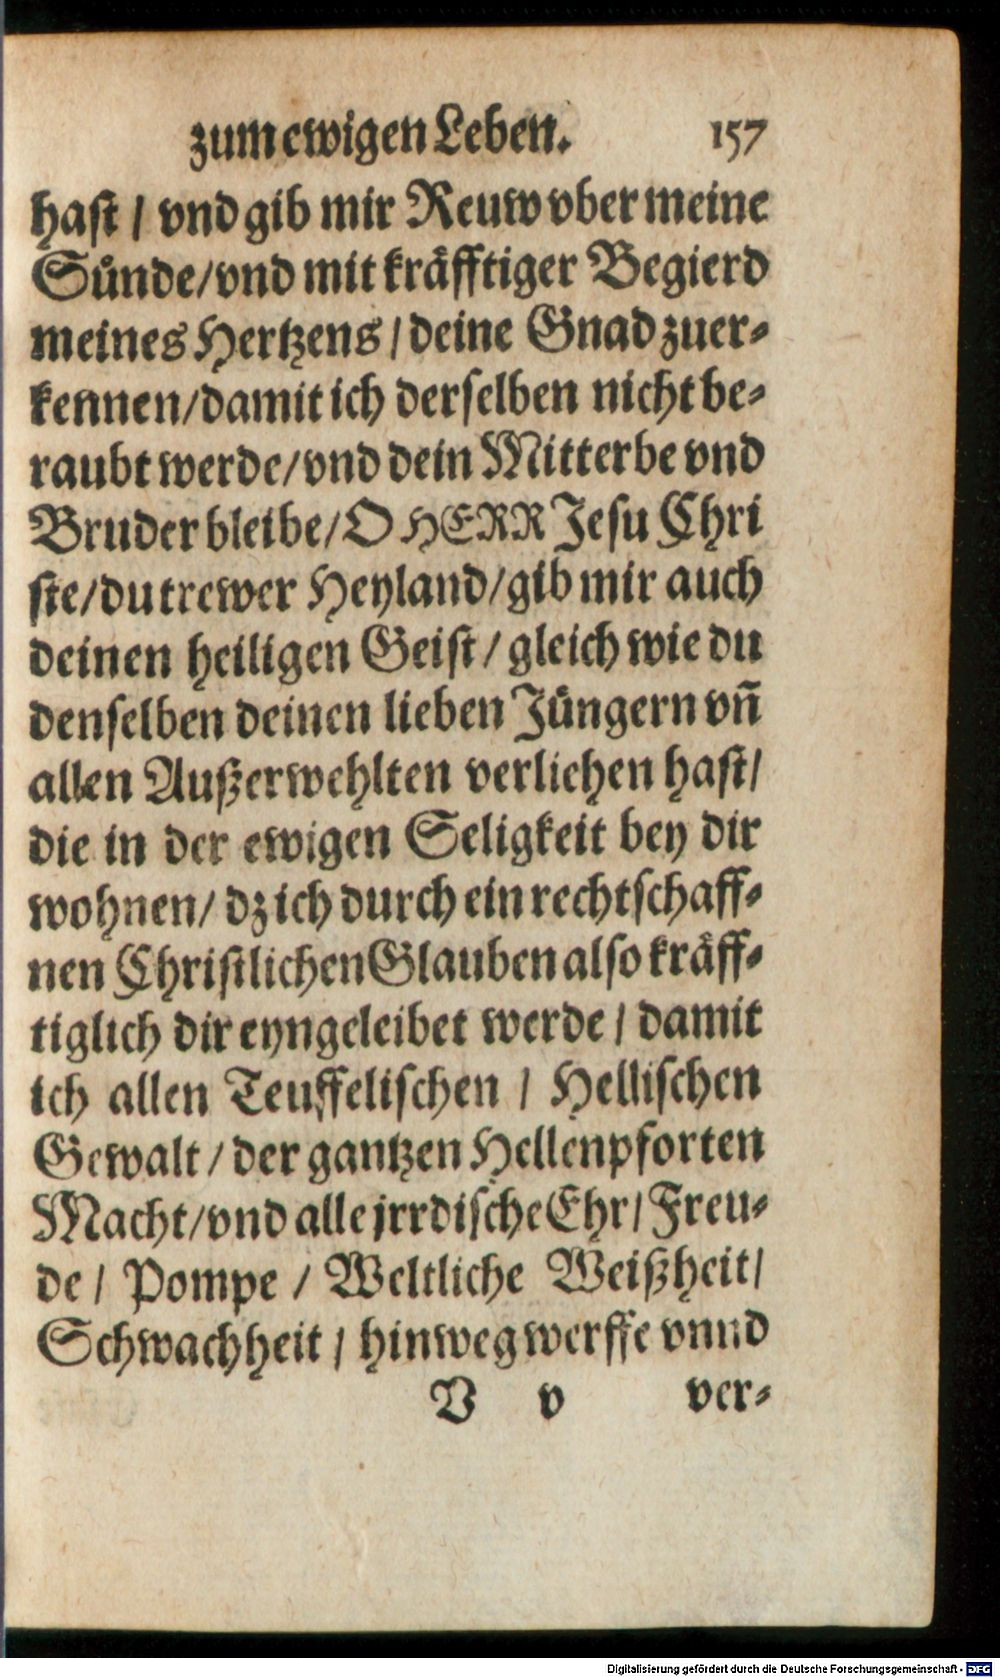 zum ewigen Leben. 157
hast / vnd gib mir Reuw vber meine
Sünde/vnd mit kräfftiger Begierd
meines Hertzens / deine Gnad zuer-
kennen/damit ich derselben nicht be-
raubt werde/vnd dein Mitterbe vnd
Bruder bleibe/O HERR Jesu Chri
ste/du trewer Heyland/gib mir auch
deinen heiligen Geist / gleich wie du
denselben deinen lieben Jüngern vñ
allen Außerwehlten verliehen hast/
die in der ewigen Seligkeit bey dir
wohnen/ dz ich durch ein rechtschaff-
nen Christlichen Glauben also kräff-
tiglich dir eyngeleibet werde / damit
ich allen Teuffelischen / Hellischen
Gewalt / der gantzen Hellenpforten
Macht/vnd alle jrrdische Ehr/ Freu-
de / Pompe / Weltliche Weißheit/
Schwachheit / hinweg werffe vnnd
V v ver-
Digitalisierung gefördert durch die Deutsche Forschungsgemeinschaft - DFG